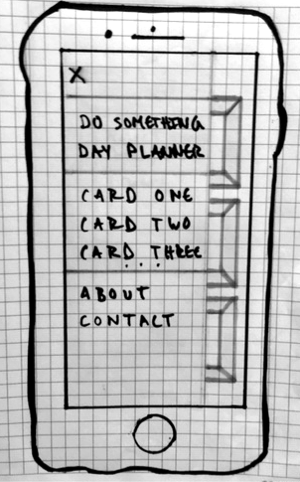 X
DO SOMETHING
DAY PLANNER
CARD ONE
CARD TWO
CARD THREE
...
ABOUT
CONTACT